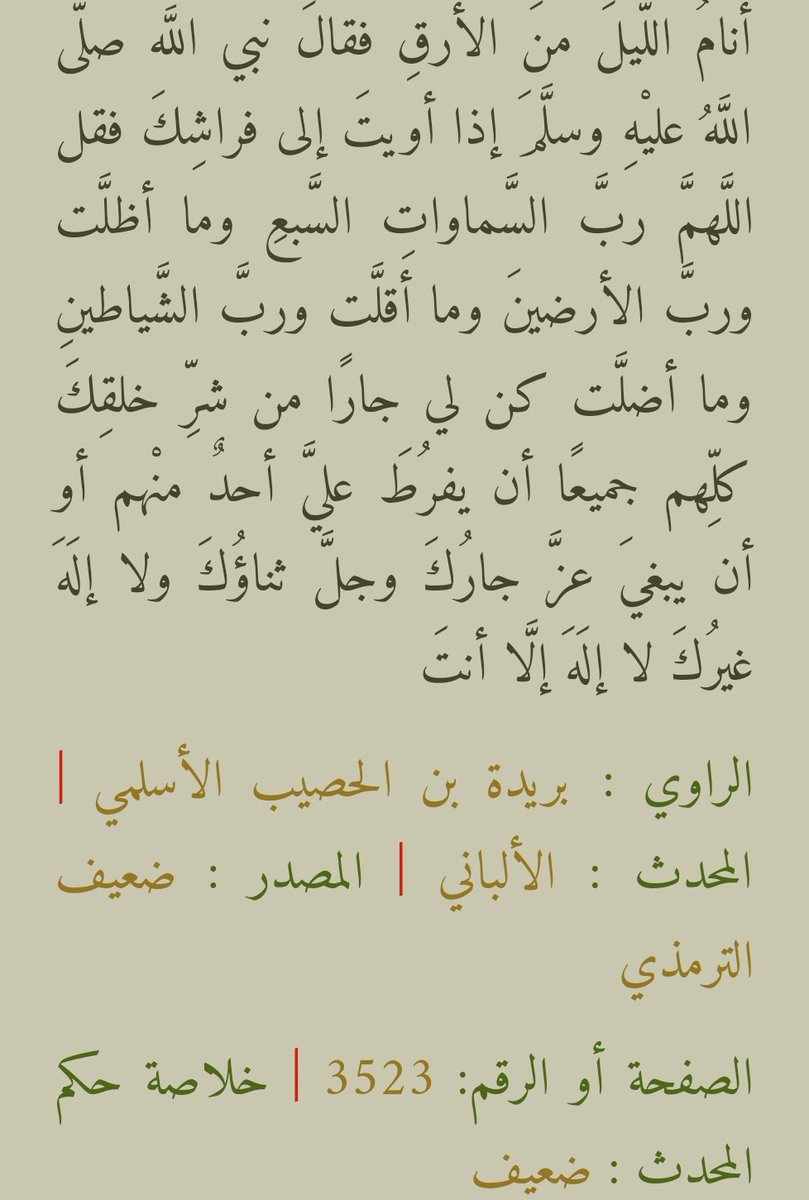 أنامُ اللَّيلَ منَ الأرقِ فقالَ نبي اللَّه صلَّى
اللَّهُ عليْهِ وسلَّمَ إذا أويتَ إلى فراشِكَ فقل
اللَّهمَّ ربَّ السَّماواتِ السَّبعِ وما أظلَّت
وربَّ الأرضينَ وما أقلَّت وربَّ الشَّياطينِ
وما أضلَّت كن لي جارًا من شرِّ خلقِكَ
كلِّهم جميعًا أن يفرُطَ عليَّ أحدٌ منْهم أو
أن يبغيَ عزَّ جارُكَ وجلَّ ثناؤُكَ ولا إلَهَ
غيرُكَ لا إلَهَ إلَّا أنتَ
الراوي : بريدة بن الحصيب الأسلمي |
المحدث : الألباني | المصدر : ضعيف
الترمذي
الصفحة أو الرقم: 3523 | خلاصة حكم
المحدث : ضعيف